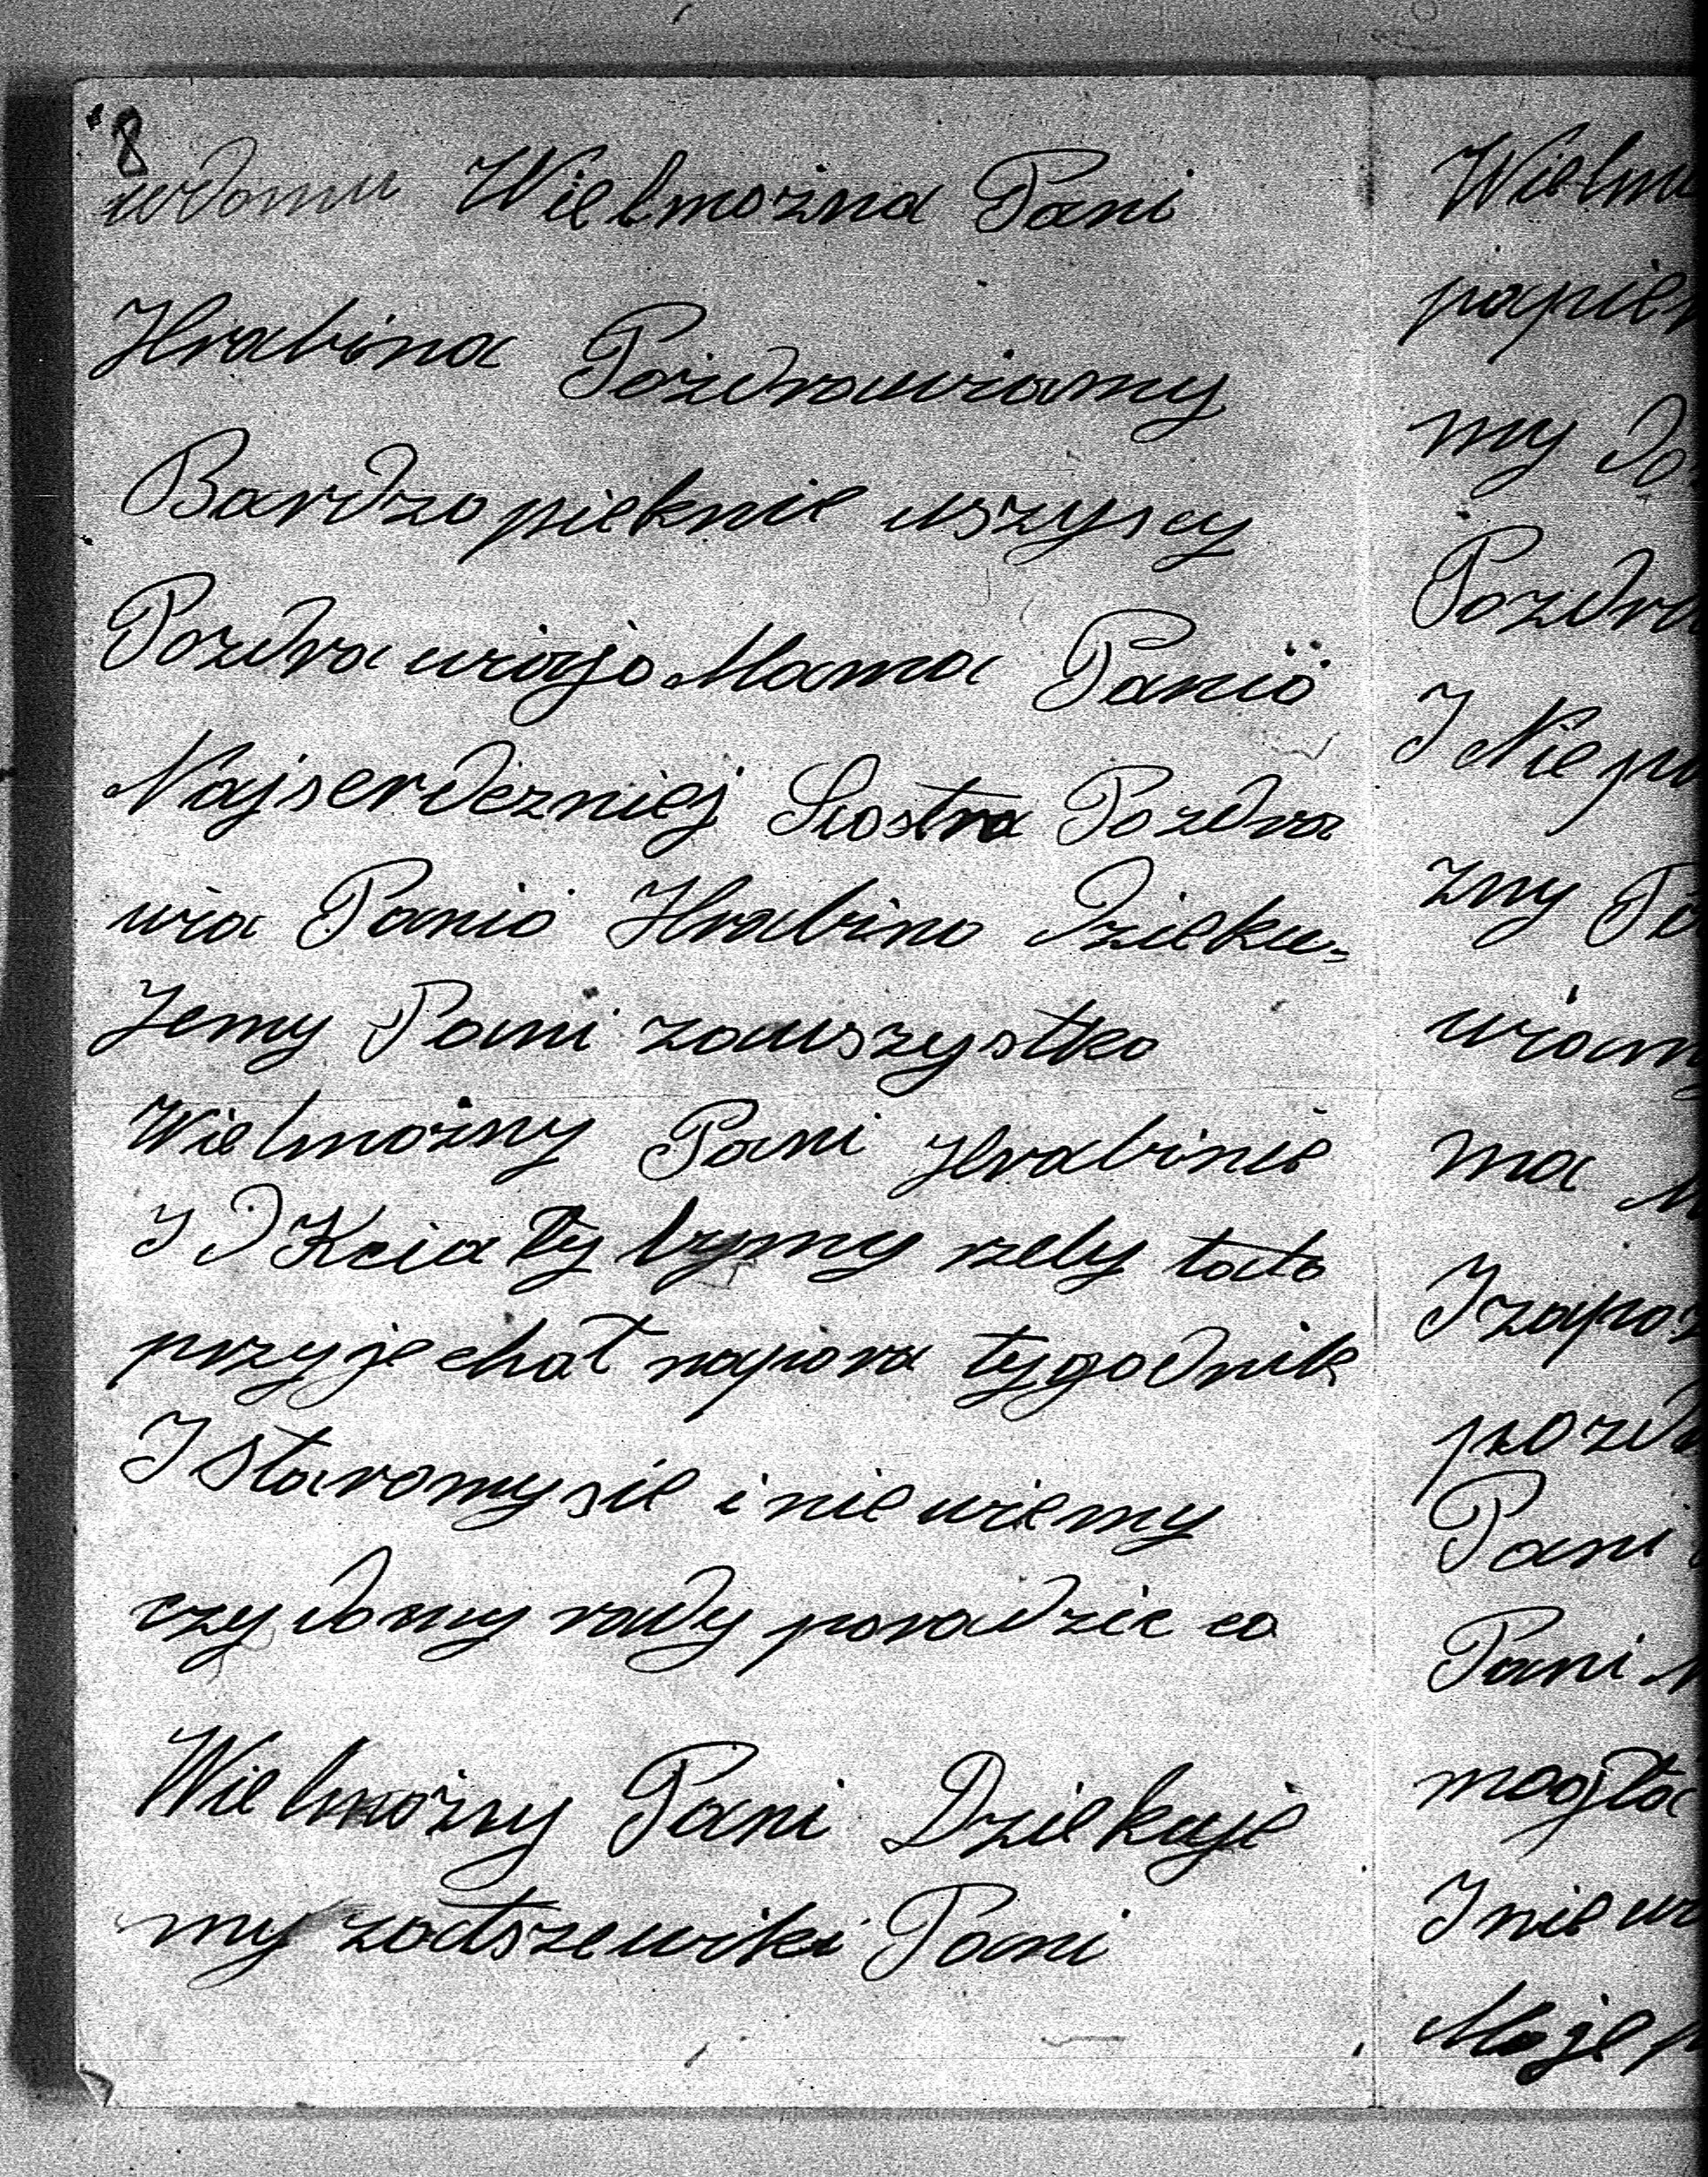 8
wdomu Wielmożna Pani
Hrabina Pozdrawiamy
Bardzo pieknie wszyscy
Pozdrawiajo Mama Panio
Najserdezniej Siostra Pozdra
wia Panio Hrabino Dzieku-
Jemy Pani zawszystko
Wielmożny Pani Hrabinie
I
zeby tato
przyjechał napora tygodnik
I Staromy sie i nie wiemy
czy domy rady poradzic co
Wielmożny Pani Dziekuje
my Pani
Wielm
papier
my do
Pozdra
I Nie po
zny Pa
wiamy
ma
I zapo
pozd
Pani
Pani
mogła
I nie w
Moje p